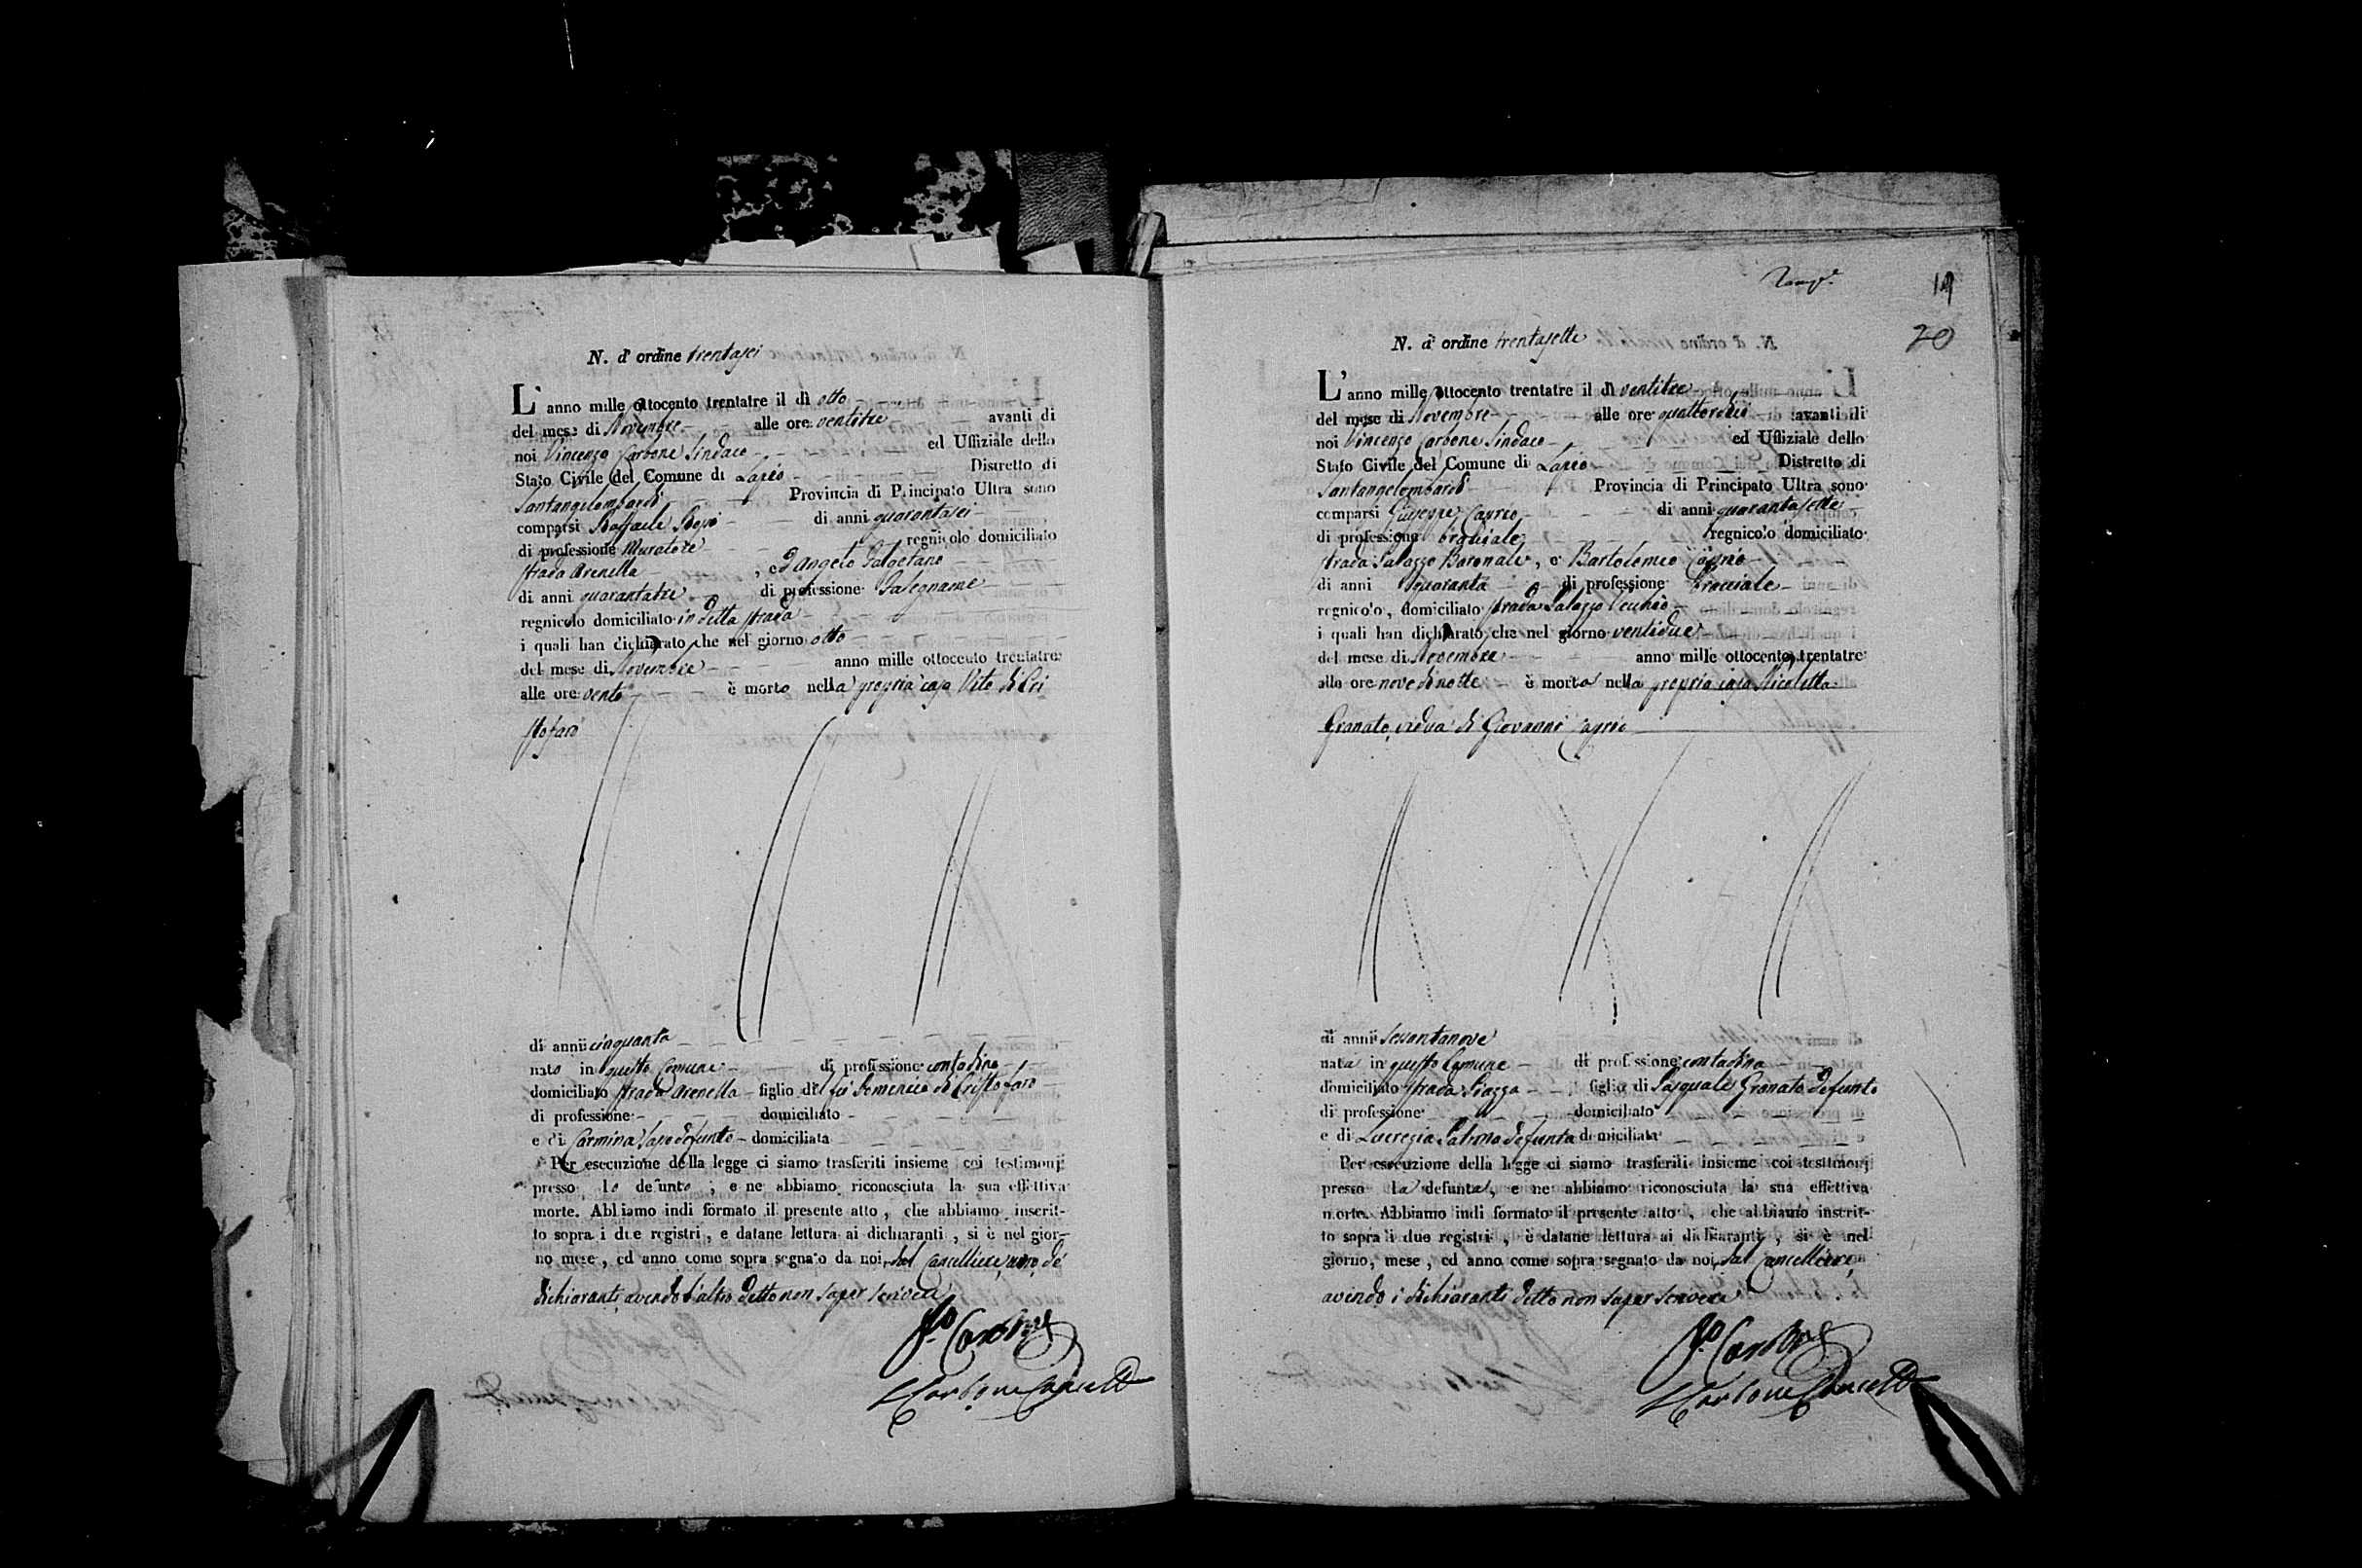 N. d'ordine trentasei
L'anno mille ottocento trentatre il dì otto
del mese di Novembre alle ore ventitre avanti di
noi Vincenzo Carbone Sindaco ed Uffiziale dello
Stato Civile del Comune di Lapio Distretto di
Santangelombardi Provincia di Principato Ultra sono
comparsi Raffaele di anni quarantasei
di professione Muratore regnicolo domiciliato
strada Arenella , ed Angelo
di anni quarantatre di professione Falegname
regnicolo domiciliato in detta strada
i quali han dichiarato che nel giorno otto
del mese di Novembre anno mille ottocento trentatre
alle ore venti è morto nella propria casa Vito di Cri
stofaro
di anni cinquanta
nato in questo Comune di professione contadino
domiciliato strada Arenella figlio di fu Domenico di Cristofaro
di professione domiciliato
e di Carmina defunta domiciliata
Per esecuzione della legge ci siamo trasferiti insieme coi testimonj
presso lo defunto , e ne abbiamo riconosciuta la sua effettiva
morte. Abbiamo indi formato il presente atto , che abbiamo inscrit-
to sopra i due registri , e datane lettura ai dichiaranti , si è nel gior-
no mese , ed anno come sopra segnato da noi, dal Cancelliere, de
dichiaranti, avendo l'altro detto non saper scrivere
Vo Carbone
Carbone Cancell
19
20
N. d'ordine trentasette
L'anno mille ottocento trentatre il dì ventitre
del mese di Novembre alle ore quattordici avanti di
noi Vincenzo Carbone Sindaco ed Uffiziale dello
Stato Civile del Comune di Lapio Distretto di
Santangelombardi Provincia di Principato Ultra sono
comparsi Giuseppe Caprio di anni quarantasette
di professione bracciale regnicolo domiciliato
strada Palazzo Baronale , e Bartolomeo Caprio
di anni quaranta di professione bracciale
regnicolo, domiciliato strada Palazzo Vecchio
i quali han dichiarato che nel giorno ventidue
del mese di Novembre anno mille ottocento trentatre
alle ore nove di notte è morta nella propria casa Nicoletta
Granato, vidua di Giovanni Caprio
di anni sessantanove
nata in questo Comune di professione contadina
domiciliato strada Piazza figlia di Pasquale Granato defunto
di professione domiciliato
e di Lucrezia defunta domiciliata
Per esecuzione della legge ci siamo trasferiti insieme coi testimonj
presso la defunta , e ne abbiamo riconosciuta la sua effettiva
morte. Abbiamo indi formato il presente atto , che abbiamo inscrit-
to sopra i due registri , e datane lettura ai dichiaranti , si è nel
giorno, mese , ed anno come sopra segnato da noi, dal Cancelliere,
avendo i dichiaranti detto non saper scrivere
Vo Carbone
Carbone Cancell